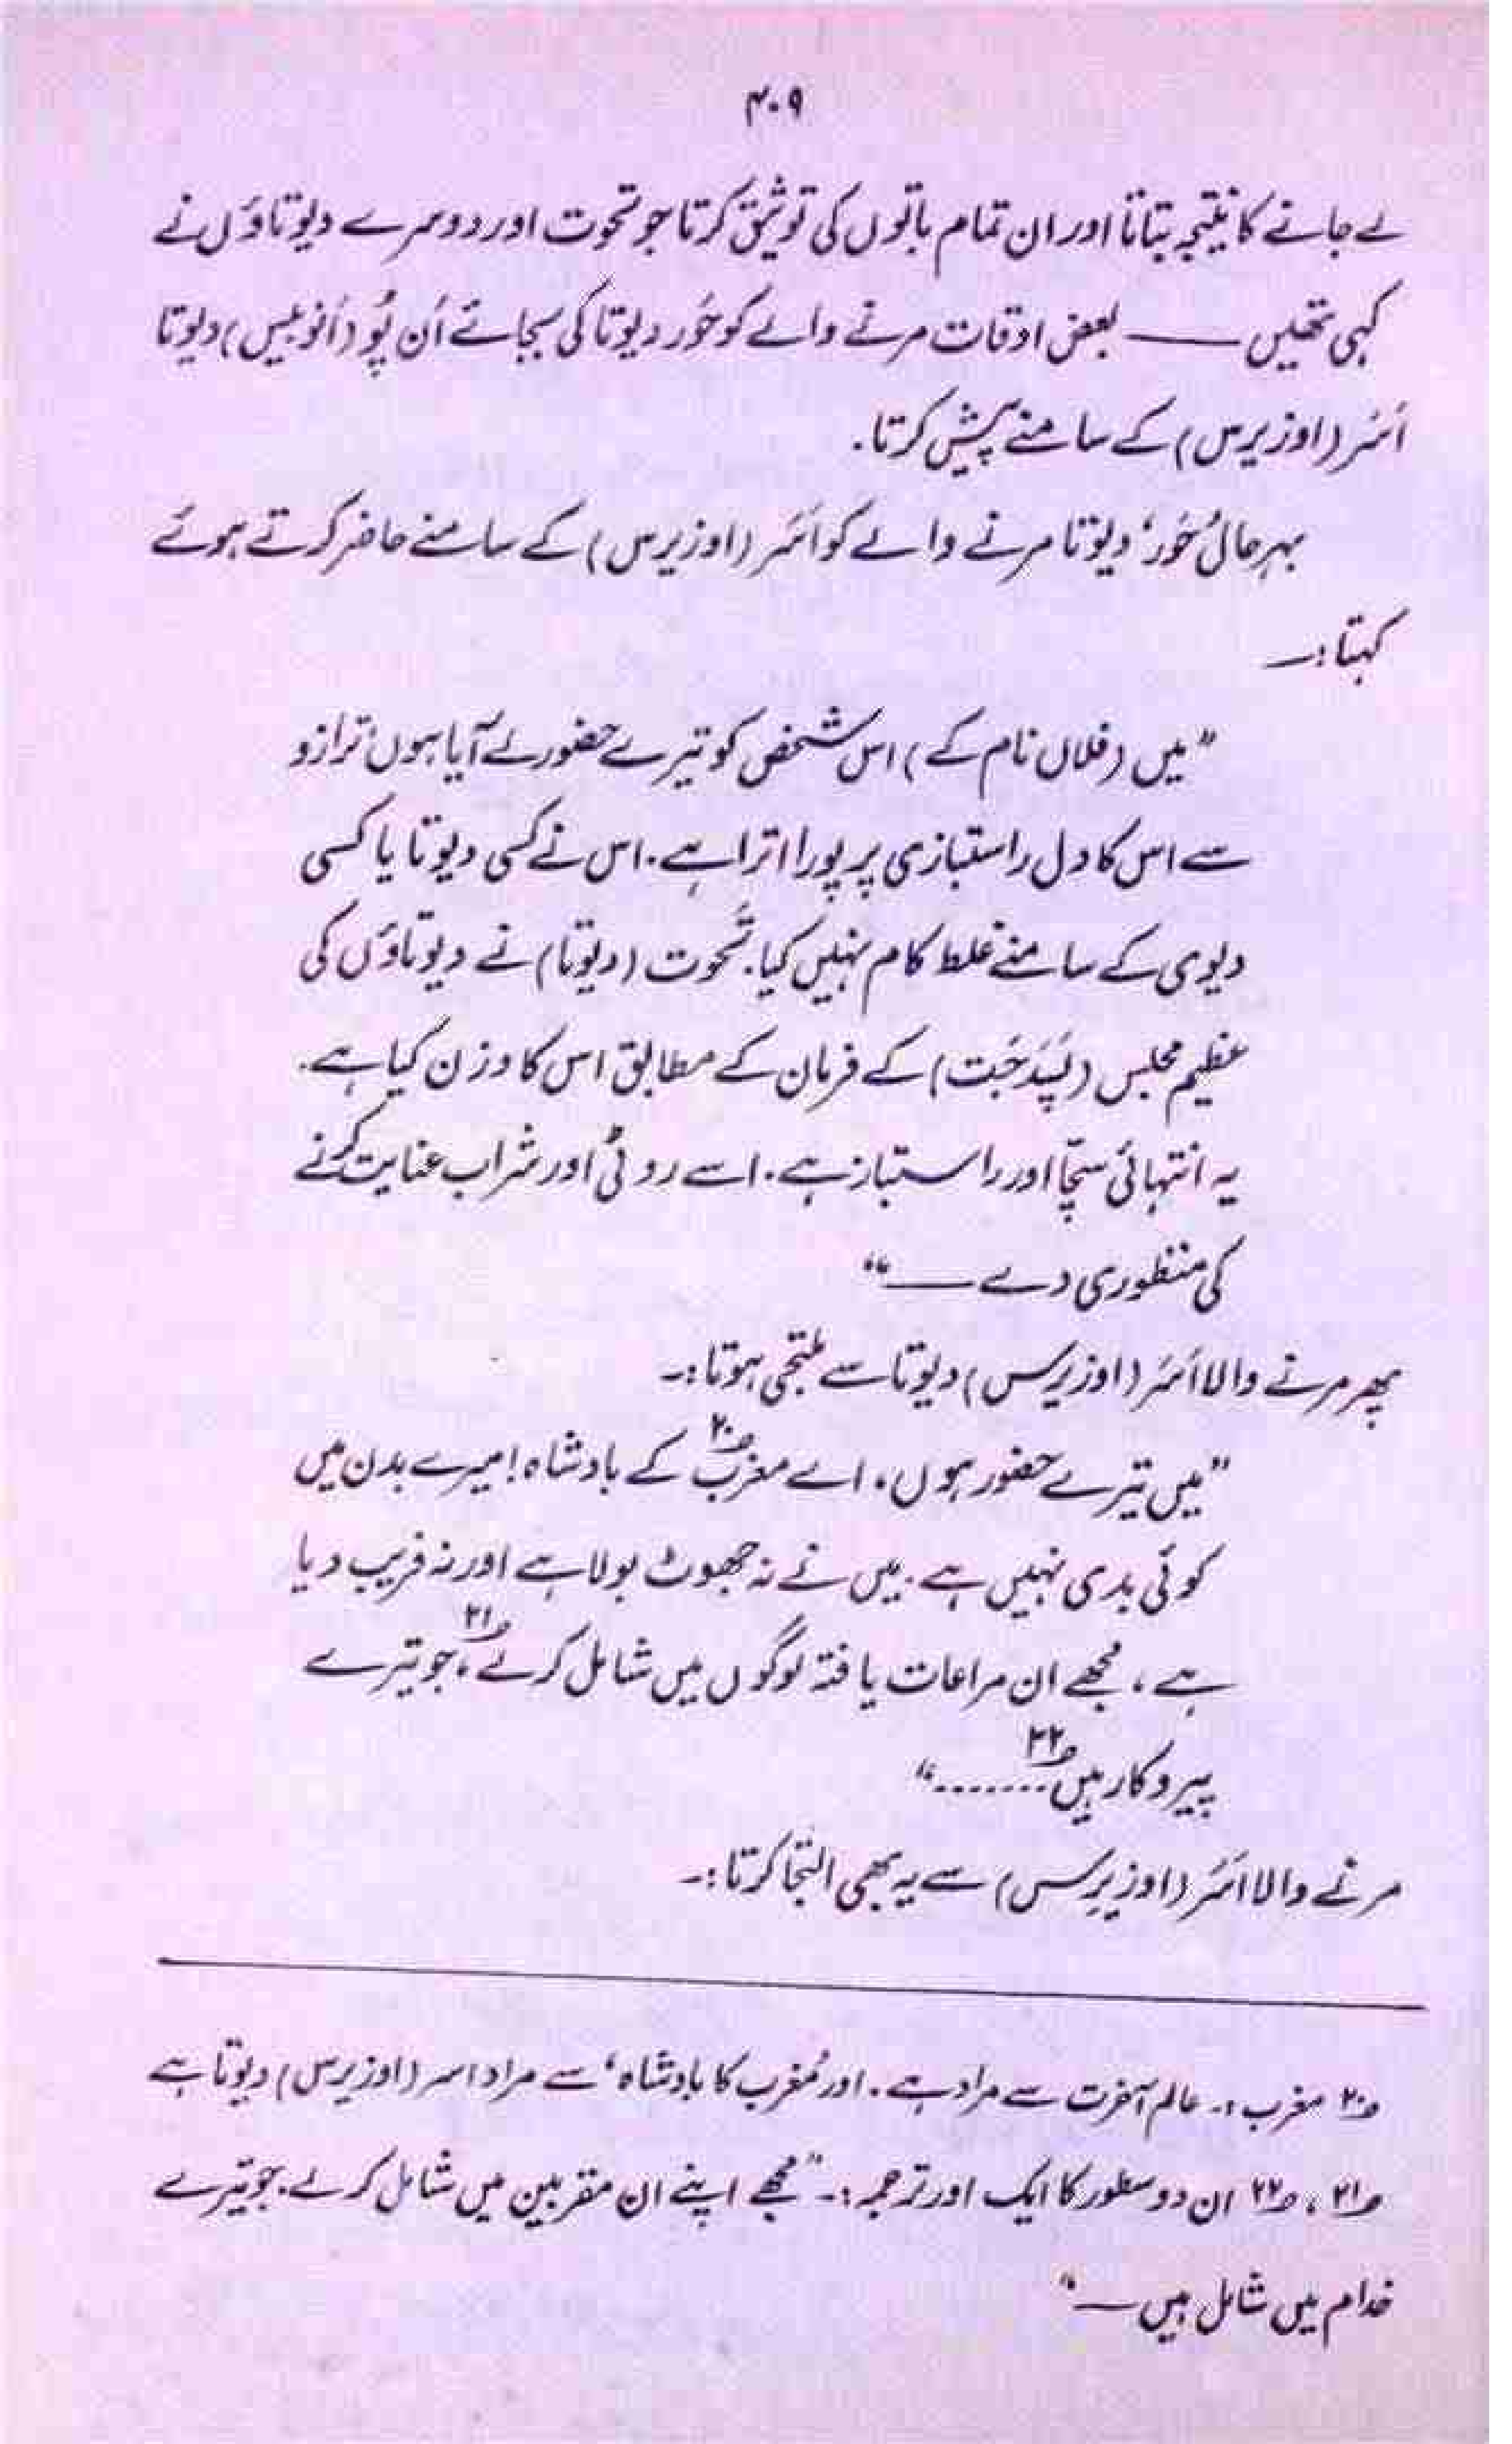 ۴۰۹
لے جانے کا نیتجہ بتاتا اور ان تمام باتوں کی توثیق کرتا جو تحوت اور دوسرے دیوتاؤں نے
کہی تھیں ــــــ بعض اوقات مرنے والے کو حُور دیوتا کی بجائے اَن پُو (اَنوبیس) دیوتا
اَسَر (اوزیرس) کے سامنے پیش کرتا۔
بہرحال 'حُور' دیوتا مرنے والے کو اَسَر (اوزیرس) کے سامنے حاضر کرتے ہوئے
کہتا :۔
"میں (فلاں نام کے) اس شخص کو تیرے حضور لے آیا ہوں ترازو
سے اس کا دل راستبازی پر پورا اترا ہے۔ اس نے کسی دیوتا یا کسی
دیوی کے سامنے غلط کام نہیں کیا۔ تحوت (دیوتا) نے دیوتاؤں کی
عظیم مجلس (پَسِدَجَت) کے فرمان کے مطابق اس کا وزن کیا ہے۔
یہ انتہائی سچّا اور راستباز ہے۔ اسے روٹی اور شراب عنایت کرنے
کی منظوری دے ــــــ"
پھر مرنے والا اَسَر (اوزیرس) دیوتا سے ملتجی ہوتا :۔
"میں تیرے حضور ہوں، اے مغرب؃۲۰ کے بادشاہ! میرے بدن میں
کوئی بدی نہیں ہے۔ میں نے نہ جھوٹ بولا ہے اور نہ فریب دیا
ہے، مجھے ان مراعات یافتہ لوگوں میں شامل کرلے؃۲۱، جو تیرے
پیروکار ہیں؃۲۲ ......."
مرنے والا اَسَر (اوزیرِس) سے یہ بھی التجا کرتا :۔
؃۲۰ مغرب :۔ عالم آخرت سے مراد ہے۔ اور 'مغرب کا بادشاہ' سے مراد اسر (اوزیرس) دیوتا ہے
؃۲۱، ؃۲۲ ان دو سطور کا ایک اور ترجمہ :۔ "مجھے اپنے ان مقربین میں شامل کرلے۔ جو تیرے
خدام میں شامل ہیں ــــ"